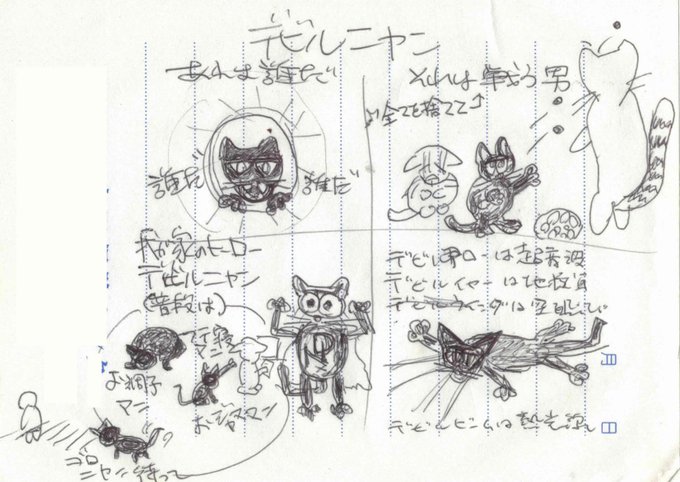 デビルニャン
あれは誰だ
誰だ
誰だ
それは戦う男
♪全てを捨てて♪
我が家のヒーロー
デビルニャン
(普段は)
フテ寝
マン
お調子
マン
おジャママン
ゴロ
ニャン待って
デビルイヤーは地獄耳
デビルウィングは空飛び
デビルビームは熱光線
月
日